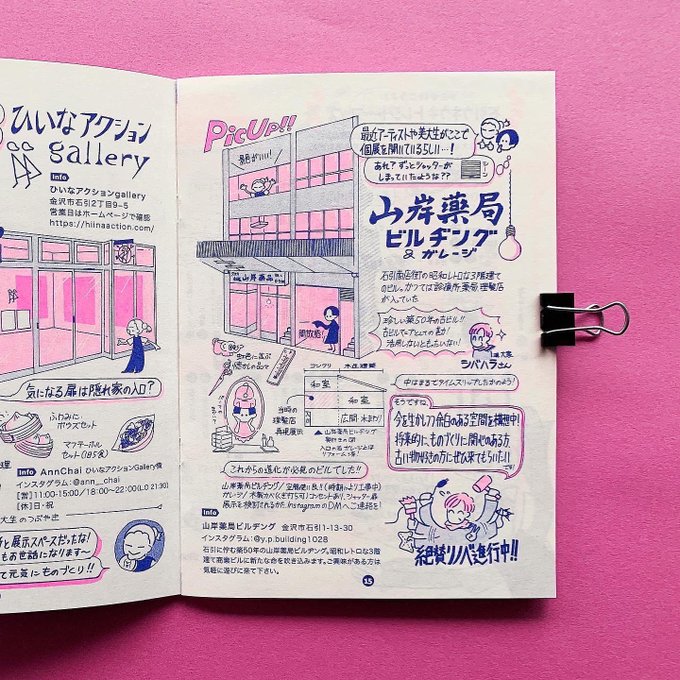 ひいなアクション
gallery
Info
ひいなアクションgallery
金沢市石引2丁目9-5
営業日はホームページで確認
https://hiinaaction.com/
気になる扉は隠れ家の入口?
ふわみに
ボウズセット
マラテーボール
セット(185食)
Info AnnChai ひいなアクションGallery横
インスタグラム:@ann__chai
[営]11:00-15:00/18:00~22:00(L.O 21:30)
[休]日・祝
大生のつぶやき
と展示スペースだったな!
もお世話になります~
て元気にものづくり!!
PicUp!!
景色がいい!
山岸薬品
開放感!
最近アーティストや美大生がここで
個展を開いているらしい…!
あれ?ずっとシャッターが
しまっていたような??
山岸薬局
ビルヂング
&ガレージ
石引商店街の昭和レトロな3階建て
のビル。かつては診療所・薬局・理髪店
が入っていた
珍しい築50年の古ビル!!
活用しないともったいない!
シバハラさん
中はまるでタイムスリップしたかのよう!
コンクリ
木造増築
和室
和室
広間・水まわり
当時の
理髪店
再現展示
そうですね、
今を生かしつつ余白のある空間を構想中!
将来的に、ものづくりに関心のある方
古い物好きの方にぜひ来てもらいたい
です
これからの進化が必見のビルでした!!
絶賛リノベ進行中!!
Info
山岸薬局ビルヂング 金沢市石引1-13-30
インスタグラム:@y.p.building1028
石引に佇む築50年の山岸薬局ビルヂング。昭和レトロな3階
建て商業ビルに新たな命を吹き込みます。ご興味がある方は
気軽に遊びに来て下さい。
15